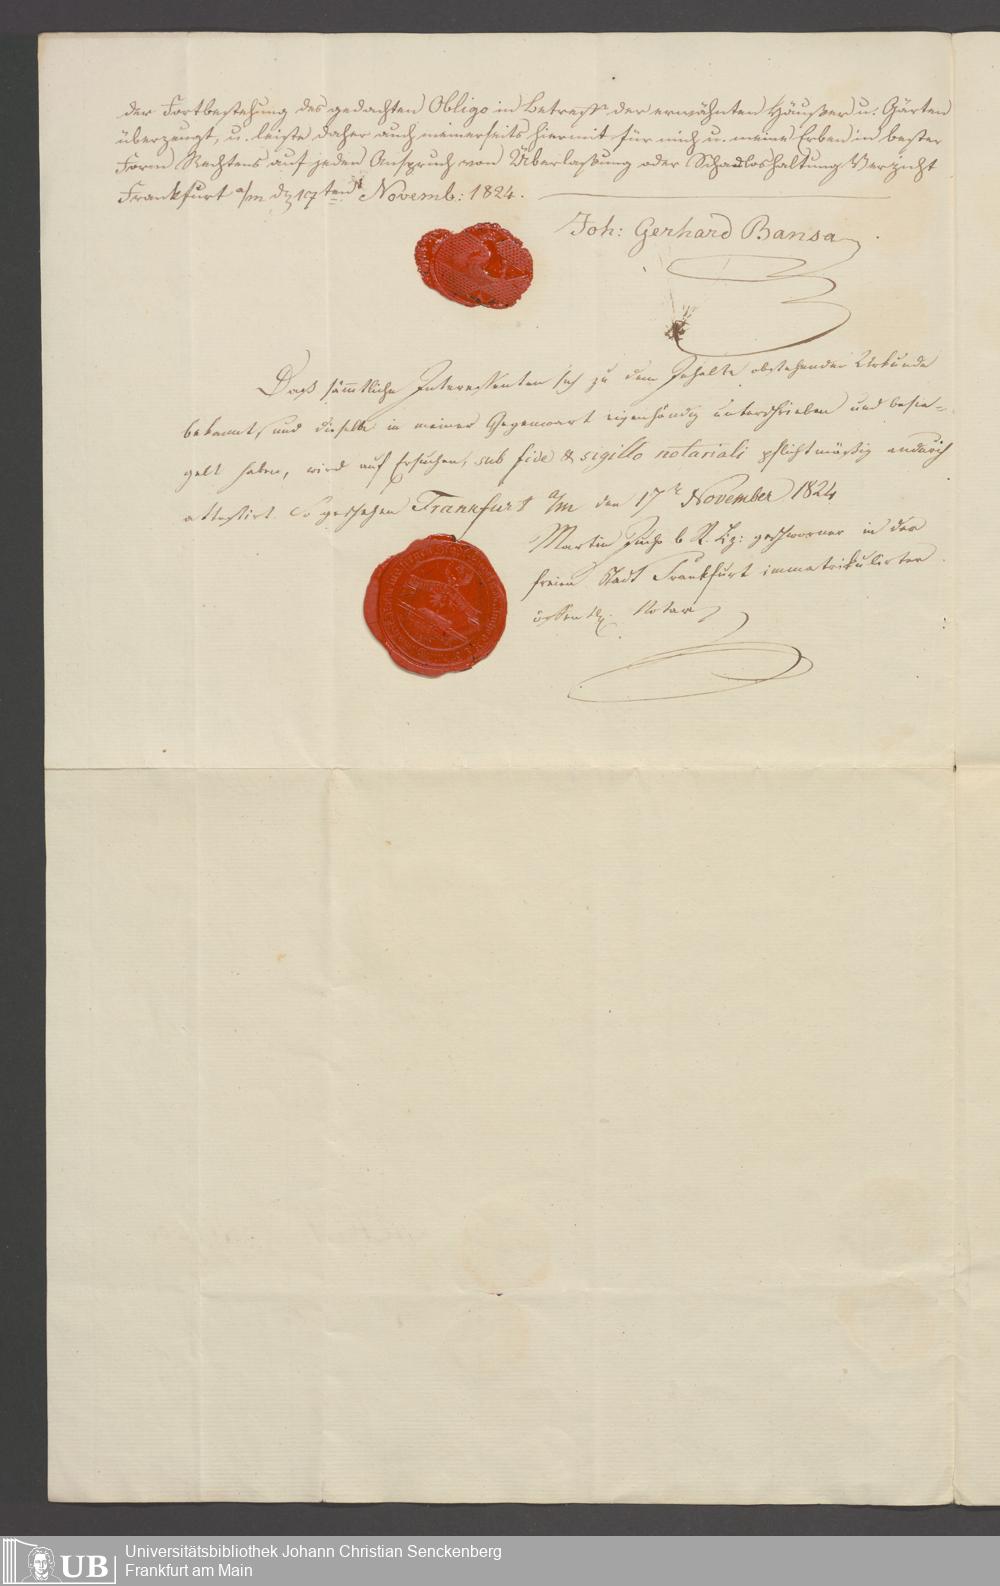 der Fortbestehung des gedachten Obligo in Betreff der erwähnten Häußer u. Gärten
überzeugt, u. leiste daher auch meinerseits hiermit für mich u. meine Erben in bester
Form Rechtens auf jeden Anspruch von Überlaßung oder Schadloshaltung Verzicht
Frankfurt a/m d. 17ten Novemb: 1824.
Joh: Gerhard Bansa
Daß sämtliche Interessenten sich zu dem Inhalte obstehender Urkunde
bekannt, und dieselbe in meiner Gegenwart eigenhändig unterschrieben und besie-
gelt haben, wird auf Ersuchen, sub fide & sigillo notariali pflichtmäßig andurch
attestirt. So geschehen Frankfurt a/m den 17t November 1824
Martin geschworner in der
freien Stadt Frankfurt immatrikulirter
öffentl. Notar
UB
Universitätsbibliothek Johann Christian Senckenberg
Frankfurt am Main